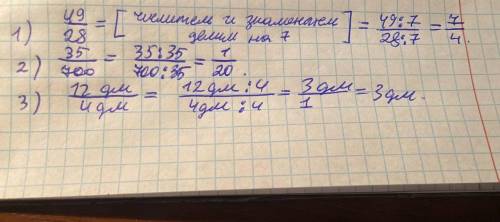 1) 49/28 = [числитель и знаменатель делим на 7] = 49:7/28:7 = 7/4.
2) 35/700 = 35:35/700:35 = 1/20.
3) 12 дм/4 дм = 12 дм:4/4 дм:4 = 3 дм/1 = 3 дм.